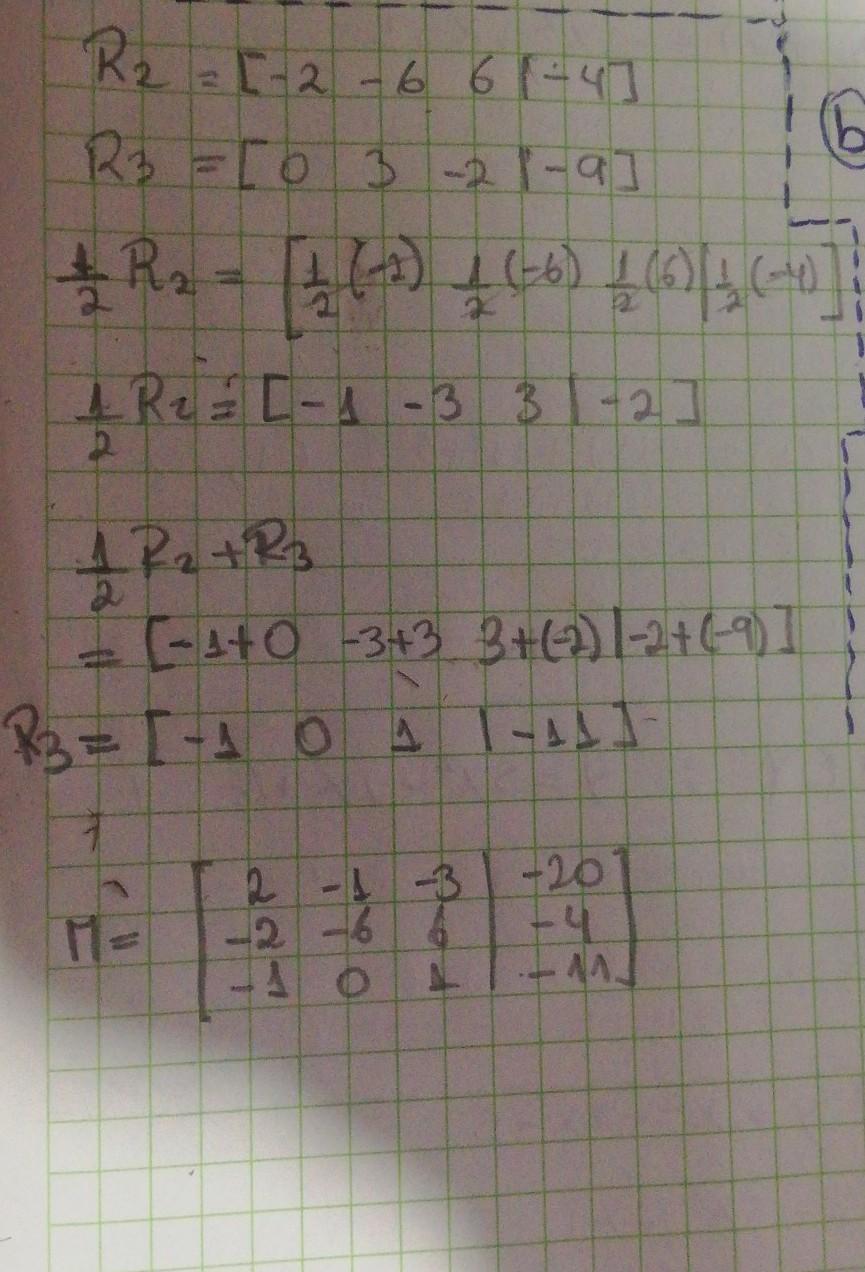 R2 = [-2 -6 6 | -4]
R3 = [0 3 -2 | -9]
b
1/2 R2 = [1/2(-2) 1/2(-6) 1/2(6) | 1/2(-4)]
1/2 R2 = [-1 -3 3 | -2]
1/2 R2 + R3
= [-1+0 -3+3 3+(-2) | -2+(-9)]
R3 = [-1 0 1 | -11]
M = [2 -1 -3 | -20
-2 -6 6 | -4
-1 0 1 | -11]